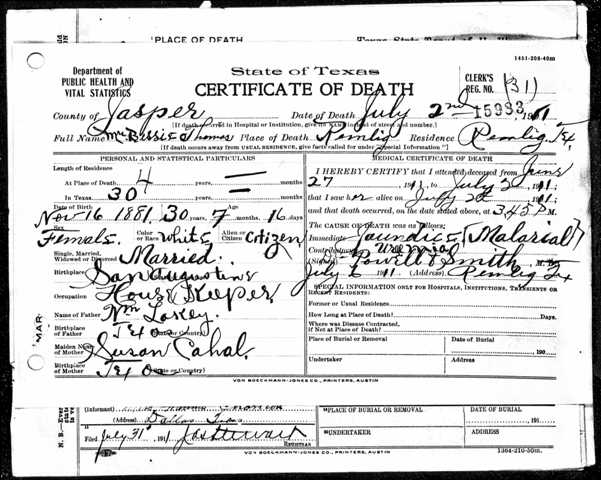 PLACE OF DEATH
1451-208-40m
Department of
PUBLIC HEALTH AND
VITAL STATISTICS
State of Texas
CERTIFICATE OF DEATH
CLERK'S
REG. NO. 31
15993
County of Jasper Date of Death July 2nd 1911
[If death occurred in Hospital or Institution, give its NAME instead of street and number.]
Full Name Mrs Bessie Thomas Place of Death Remlig Residence Remlig Tex
[If death occurs away from USUAL RESIDENCE, give facts called for under "Special Information"]
PERSONAL AND STATISTICAL PARTICULARS
Length of Residence
At Place of Death 4 years, — months
In Texas 30 years, — months
Date of Birth
Nov 16 1881, 30 years 7 months 16 days
Sex
Female Color or Race White Alien or Citizen Citizen
Single, Married,
Widowed or Divorced Married
Birthplace San Augustine
Occupation House Keeper
Name of Father Wm Laxey
Birthplace of Father Texas (State or Country)
Maiden Name of Mother Susan Cahal
Birthplace of Mother Texas (State or Country)
MEDICAL CERTIFICATE OF DEATH
I HEREBY CERTIFY that I attended deceased from June
27 1911, to July 2nd 1911,
that I saw her alive on July 2nd 1911,
and that death occurred, on the date stated above, at 3:45 P M.
THE CAUSE OF DEATH was as follows:
Immediate Jaundice (Malarial)
Contributing
(Signed) Powell & Smith M. D.
July 2 1911 (Address) Remlig Tex
SPECIAL INFORMATION ONLY FOR HOSPITALS, INSTITUTIONS, TRANSIENTS OR
RECENT RESIDENTS:
Former or Usual Residence
How Long at Place of Death? Days.
Where was Disease Contracted,
If Not at Place of Death?
Place of Burial or Removal Date of Burial
190
Undertaker Address
VON BOECKMANN-JONES CO., PRINTERS, AUSTIN
MAR
N. B.—Ever
state
is ve
(Informant)
(Address) Dallas Texas
Filed July 31 1911 Jas Stewart
REGISTRAR
*PLACE OF BURIAL OR REMOVAL DATE OF BURIAL
191
*UNDERTAKER ADDRESS
VON BOECKMANN-JONES CO., PRINTERS, AUSTIN 1364-210-50m.